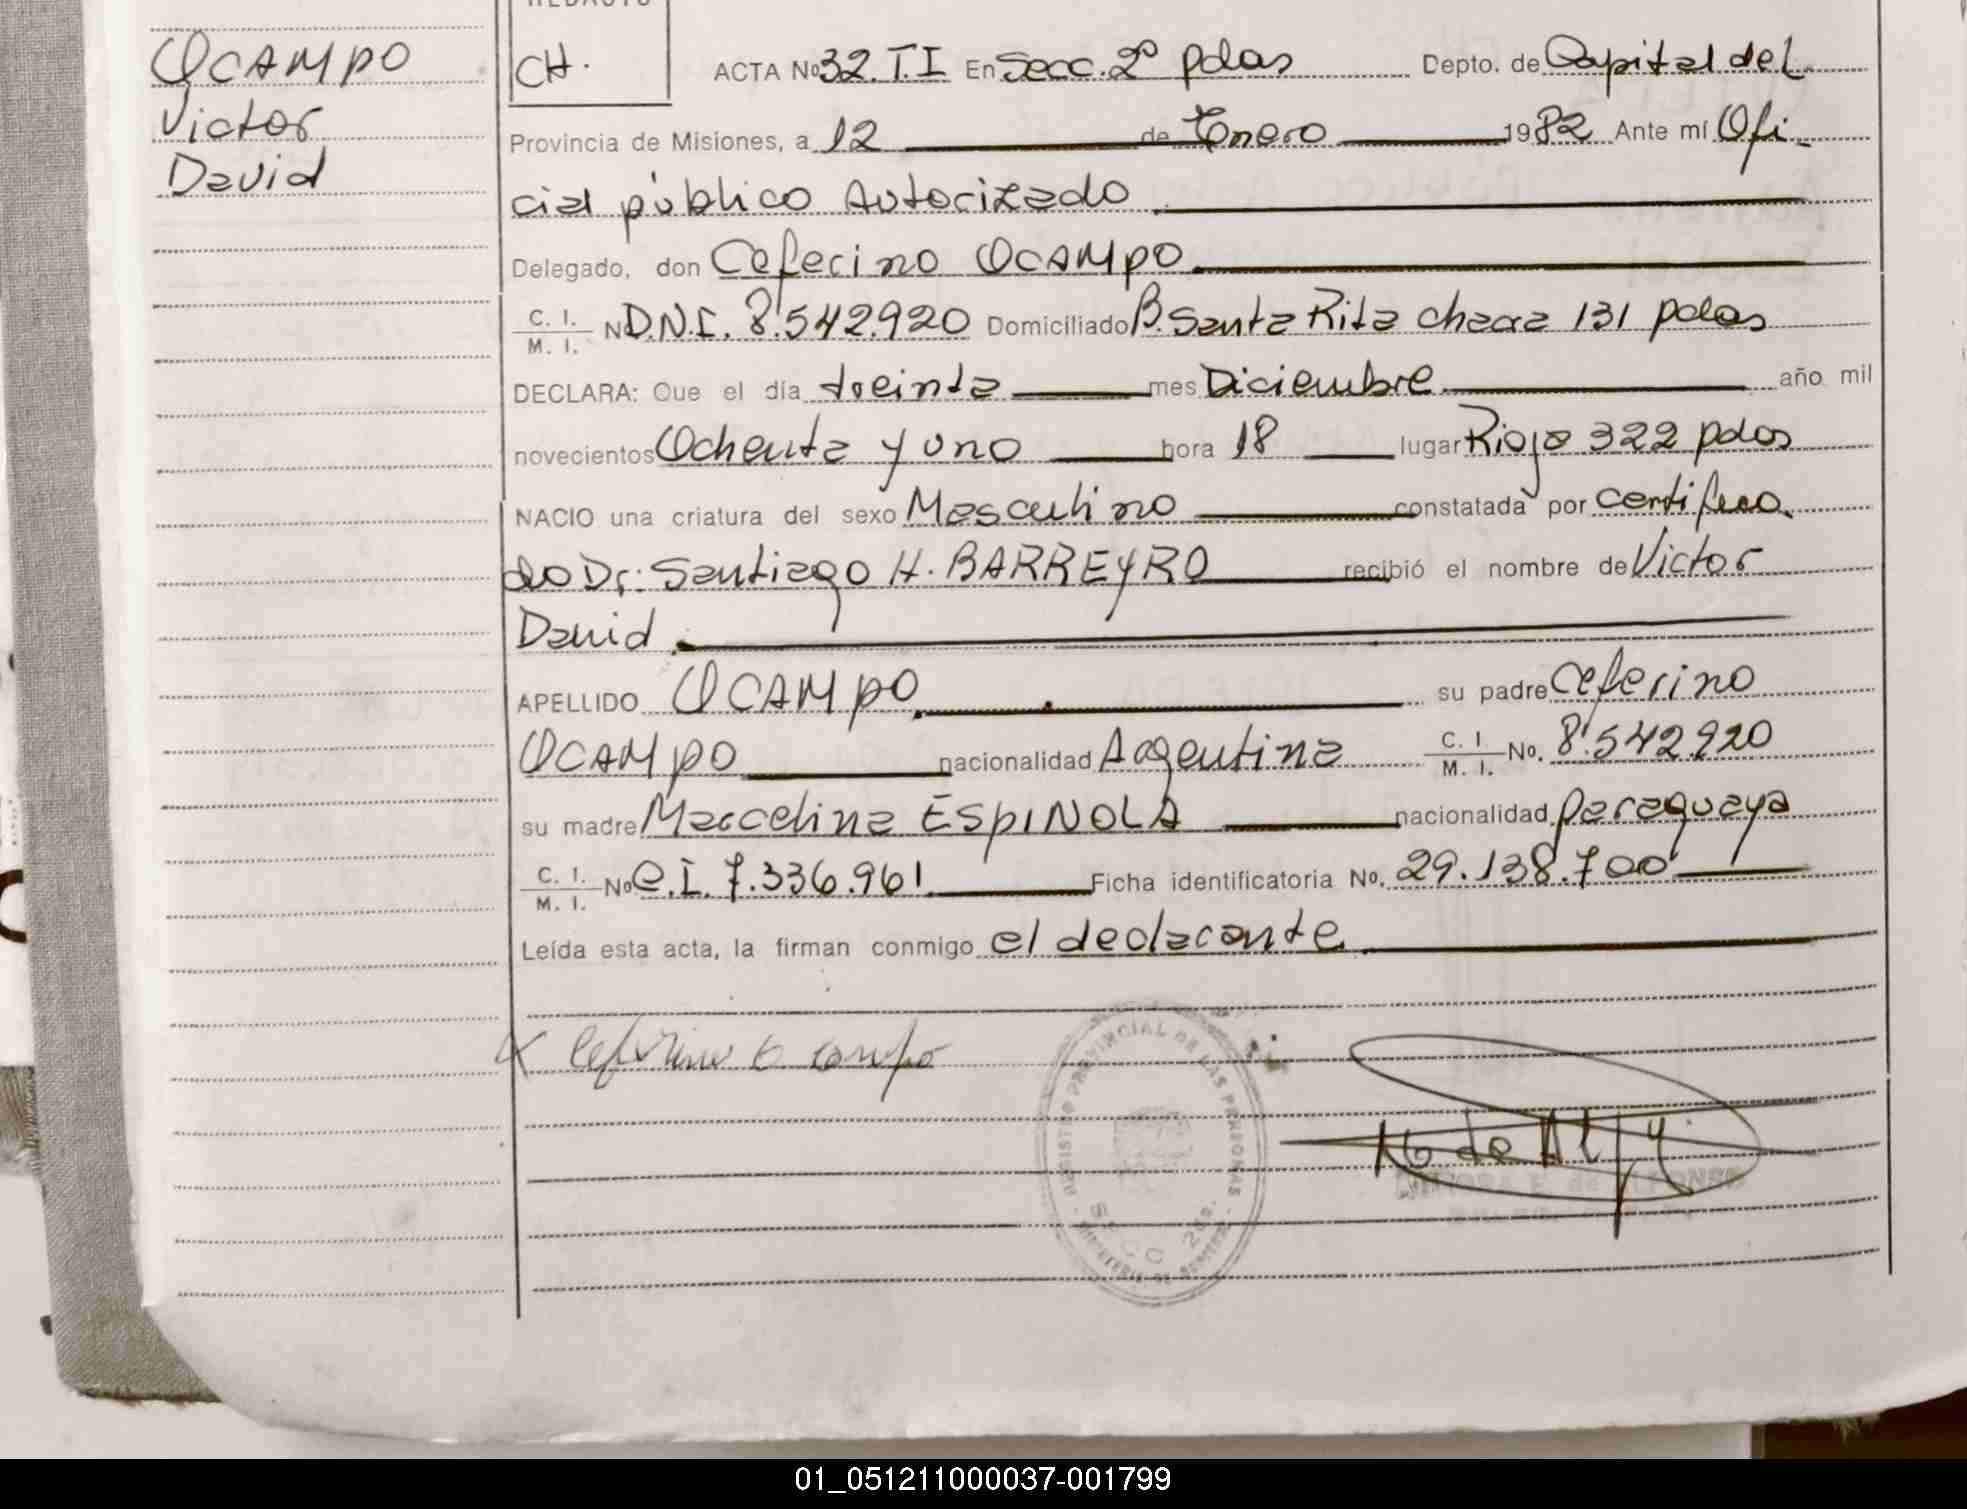 OCAMPO
Victor
David
CH.
ACTA Nº 32.T.I En Secc. 2º Pdas Depto. de Capital del
Provincia de Misiones, a 12 de Enero 1982 Ante mí Ofi-
cial público Autorizado
Delegado, don Ceferino OCAMPO
C. I. / M. I. Nº D.N.I. 8.542.920 Domiciliado B. Santa Rita chacra 131 Pdas
DECLARA: Que el día treinta mes Diciembre año mil
novecientos Ochenta y uno hora 18 lugar Rioja 322 Pdas
NACIO una criatura del sexo Masculino constatada por certifica
do Dr: Santiago H. BARREYRO recibió el nombre de Victor
David
APELLIDO OCAMPO su padre Ceferino
OCAMPO nacionalidad Argentina C. I. / M. I. No. 8.542.920
su madre Marcelina ESPINOLA nacionalidad Paraguaya
C. I. / M. I. Nº C.I. 7.336.961 Ficha identificatoria No. 29.138.700
Leída esta acta, la firman conmigo el declarante
x Ceferino Ocampo
REGISTRO PROVINCIAL DE LAS PERSONAS
SECC 2da.
01_051211000037-001799